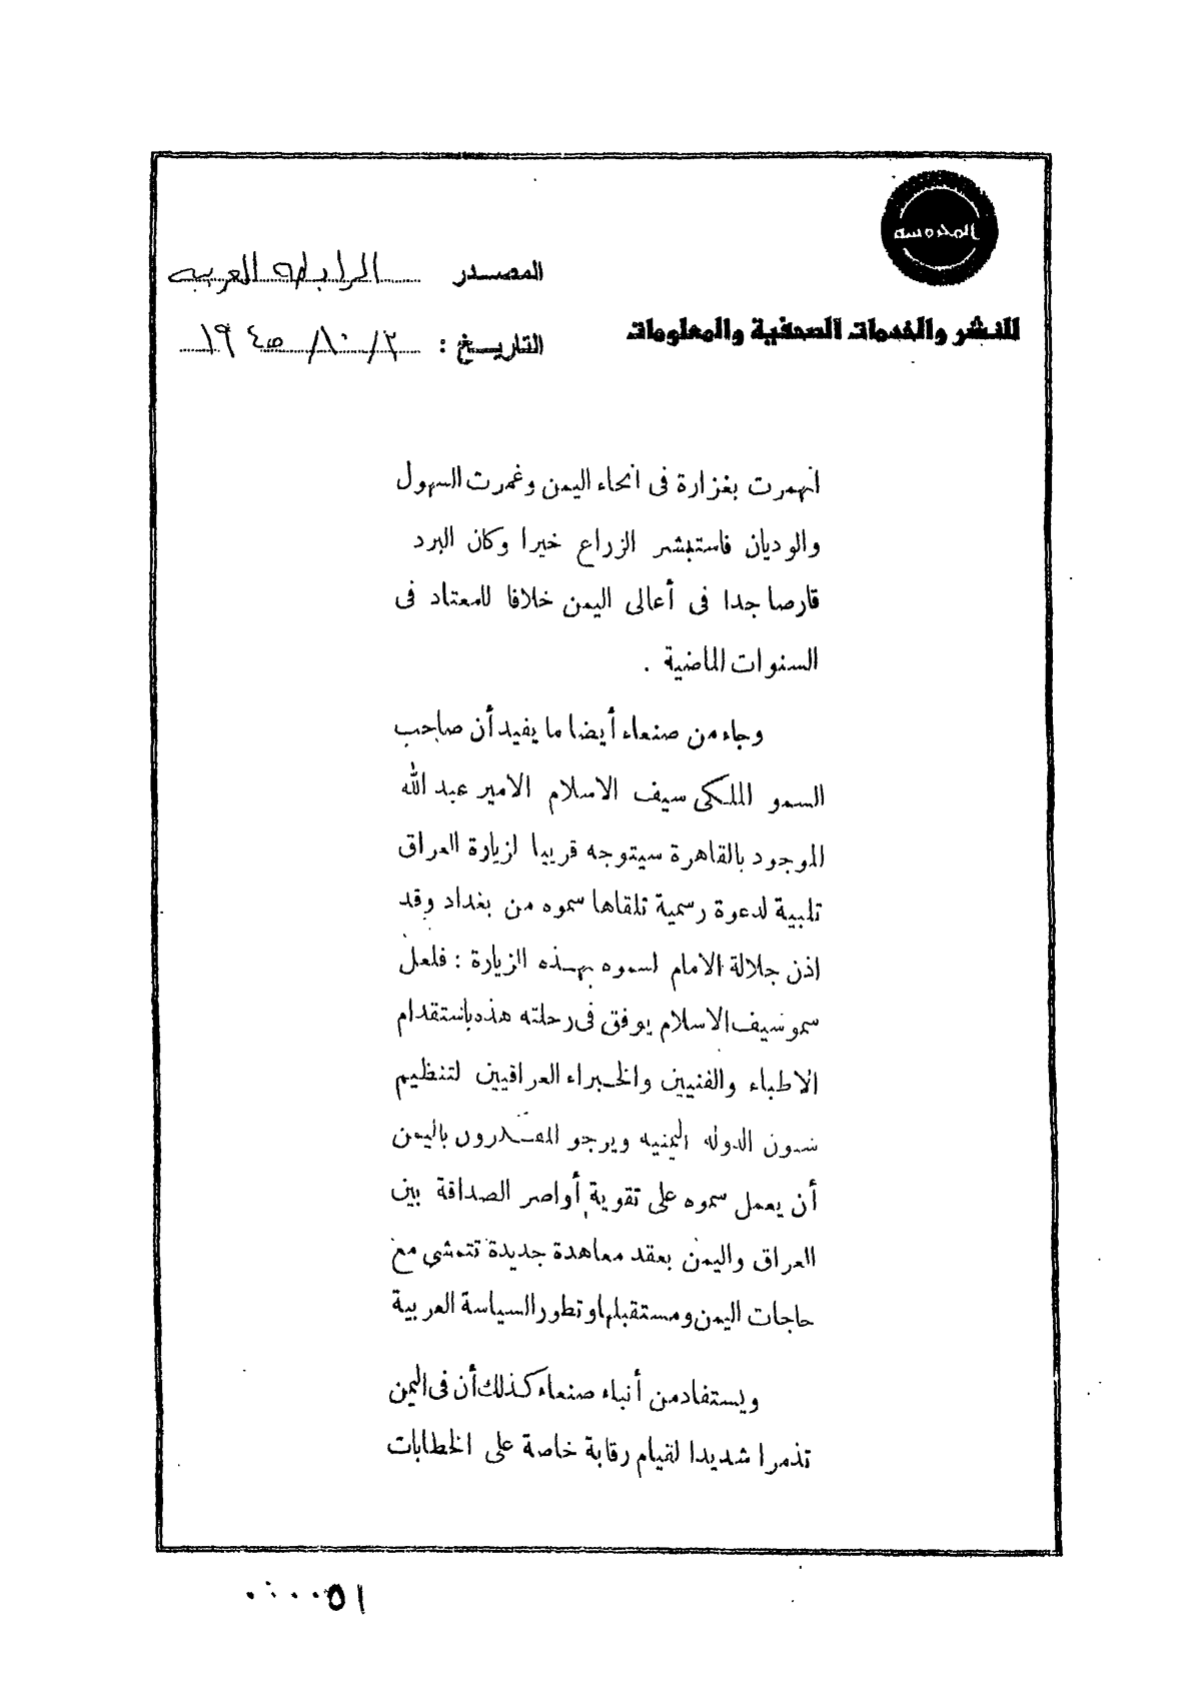 المحروسة
المصدر الرابطة العربية
للنشر والخدمات الصحفية والمعلومات
التاريخ : ٢/ ١٠/ ١٩٤٥
انهمرت بغزارة فى انحاء اليمن وغمرت السهول
والوديان فاستبشر الزراع خيرا وكان البرد
قارصا جدا فى أعالى اليمن خلافا للمعتاد فى
السنوات الماضية .
وجاء من صنعاء أيضا ما يفيد أن صاحب
السمو الملكى سيف الاسلام الامير عبد الله
الموجود بالقاهرة سيتوجه قريبا لزيارة العراق
تلبية لدعوة رسمية تلقاها سموه من بغداد وقد
اذن جلالة الامام لسموه بهذه الزيارة : فلعل
سمو سيف الاسلام يوفق فى رحلته هذه باستقدام
الاطباء والفنيين والخبراء العراقيين لتنظيم
شئون الدوله اليمنيه ويرجو المقدرون باليمن
أن يعمل سموه على تقوية أواصر الصداقة بين
العراق واليمن بعقد معاهدة جديدة تتمشى مع
حاجات اليمن ومستقبلها وتطور السياسة العربية
ويستفاد من أنباء صنعاء كذلك أن فى اليمن
تذمرا شديدا لقيام رقابة خاصة على الخطابات
٠٠٠٠٥١